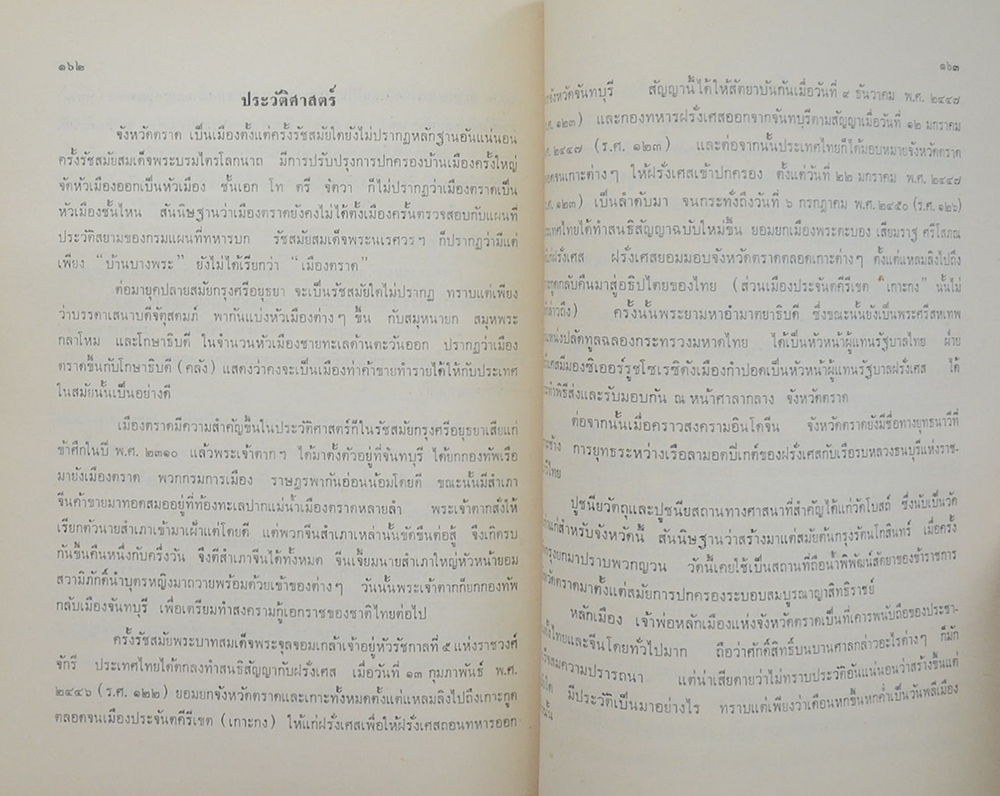 ๑๖๒
ประวัติศาสตร์
จังหวัดตราด เป็นเมืองตั้งแต่ครั้งรัชสมัยใดยังไม่ปรากฏหลักฐานอันแน่นอน
ครั้งรัชสมัยสมเด็จพระบรมไตรโลกนาถ มีการปรับปรุงการปกครองบ้านเมืองครั้งใหญ่
จัดหัวเมืองออกเป็นหัวเมือง ชั้นเอก โท ตรี จัตวา ก็ไม่ปรากฏว่าเมืองตราดเป็น
หัวเมืองชั้นไหน สันนิษฐานว่าเมืองตราดยังคงไม่ได้ตั้งเมืองครั้นตรวจสอบกับแผนที่
ประวัติสยามของกรมแผนที่ทหารบก รัชสมัยสมเด็จพระนเรศวรฯ ก็ปรากฏว่ามีแต่
เพียง “บ้านบางพระ” ยังไม่ได้เรียกว่า “เมืองตราด”
ต่อมายุคปลายสมัยกรุงศรีอยุธยา จะเป็นรัชสมัยใดไม่ปรากฏ ทราบแต่เพียง
ว่าบรรดาเสนาบดีจัตุสดมภ์ พากันแบ่งหัวเมืองต่างๆ ขึ้น กับสมุหนายก สมุหพระ
กลาโหม และโกษาธิบดี ในจำนวนหัวเมืองชายทะเลด้านตะวันออก ปรากฏว่าเมือง
ตราดขึ้นกับโกษาธิบดี (คลัง) แสดงว่าคงจะเป็นเมืองทำค้าขายทำรายได้ให้กับประเทศ
ในสมัยนั้นเป็นอย่างดี
เมืองตราดมีความสำคัญขึ้นในประวัติศาสตร์ก็ในรัชสมัยกรุงศรีอยุธยาเสียแก่
ข้าศึกในปี พ.ศ. ๒๓๑๐ แล้วพระเจ้าตากฯ ได้มาตั้งตัวอยู่ที่จันทบุรี ได้ยกกองทัพเรือ
มายังเมืองตราด พวกกรมการเมือง ราษฎรพากันอ่อนน้อมโดยดี ขณะนั้นมีสำเภา
จีนค้าขายมาทอดสมออยู่ที่ท้องทะเลปากแม่น้ำเมืองตราดหลายลำ พระเจ้าตากสั่งให้
เรียกตัวนายสำเภาเข้ามาเฝ้าแต่โดยดี แต่พวกจีนสำเภาเหล่านั้นขัดขืนต่อสู้ จึงเกิดรบ
กันขึ้นคืนหนึ่งกับครึ่งวัน จึงตีสำเภาจีนได้ทั้งหมด จีนเจี๋ยมนายสำเภาใหญ่หัวหน้ายอม
สวามิภักดิ์นำบุตรหญิงมาถวายพร้อมด้วยเข้าของต่างๆ วันนั้นพระเจ้าตากก็ยกกองทัพ
กลับเมืองจันทบุรี เพื่อเตรียมทำสงครามกู้เอกราชของชาติไทยต่อไป
ครั้งรัชสมัยพระบาทสมเด็จพระจุลจอมเกล้าเจ้าอยู่หัวรัชกาลที่ ๕ แห่งราชวงศ์
จักรี ประเทศไทยได้ตกลงทำสนธิสัญญากับฝรั่งเศส เมื่อวันที่ ๑๓ กุมภาพันธ์ พ.ศ.
๒๔๔๖ (ร.ศ. ๑๒๒) ยอมยกจังหวัดตราดและเกาะทั้งหมดตั้งแต่แหลมลิงไปถึงเกาะกูด
ตลอดจนเมืองประจันตคีรีเขต (เกาะกง) ให้แก่ฝรั่งเศสเพื่อให้ฝรั่งเศสถอนทหารออก
๑๖๓
จังหวัดจันทบุรี สัญญานี้ได้ให้สัตยาบันกันเมื่อวันที่ ๙ ธันวาคม พ.ศ. ๒๔๔๗
๑๒๓) และกองทหารฝรั่งเศสออกจากจันทบุรีตามสัญญาเมื่อวันที่ ๑๒ มกราคม
๒๔๔๗ (ร.ศ. ๑๒๓) และต่อจากนั้นประเทศไทยก็ได้มอบหมายจังหวัดตราด
เกาะต่างๆ ให้ฝรั่งเศสเข้าปกครอง ตั้งแต่วันที่ ๒๒ มกราคม พ.ศ. ๒๔๔๗
๑๒๓) เป็นลำดับมา จนกระทั่งถึงวันที่ ๖ กรกฎาคม พ.ศ. ๒๔๕๐ (ร.ศ. ๑๒๖)
ไทยได้ทำสนธิสัญญาฉบับใหม่ขึ้น ยอมยกเมืองพระตะบอง เสียมราฐ ศรีโสภณ
ฝรั่งเศส ฝรั่งเศสยอมมอบจังหวัดตราดตลอดเกาะต่างๆ ตั้งแต่แหลมลิงไปถึง
กลับคืนมาสู่อธิปไตยของไทย (ส่วนเมืองประจันตคีรีเขต “เกาะกง” นั้นไม่
ถึง) ครั้งนั้นพระยามหาอำมาตยาธิบดี ซึ่งขณะนั้นยังเป็นพระศรีสหเทพ
ปลัดทูลฉลองกระทรวงมหาดไทย ได้เป็นหัวหน้าผู้แทนรัฐบาลไทย ฝ่าย
มีมองซิเออร์รูซโซเรซิดังเมืองกำปอดเป็นหัวหน้าผู้แทนรัฐบาลฝรั่งเศส ได้
พิธีส่งและรับมอบกัน ณ หน้าศาลากลาง จังหวัดตราด
ต่อจากนั้นเมื่อคราวสงครามอินโดจีน จังหวัดตราดยังมีชื่อทางยุทธนาวีที่
การยุทธระหว่างเรือลามอตปิเกต์ของฝรั่งเศสกับเรือรบหลวงธนบุรีแห่งราช-
ไทย
ปูชนียวัตถุและปูชนียสถานทางศาสนาที่สำคัญได้แก่วัดโบสถ์ ซึ่งนับเป็นวัด
สำหรับจังหวัดนี้ สันนิษฐานว่าสร้างมาแต่สมัยต้นกรุงรัตนโกสินทร์ เมื่อครั้ง
ยกมาปราบพวกญวน วัดนี้เคยใช้เป็นสถานที่ถือน้ำพิพัฒน์สัตยาของข้าราชการ
ตราดมาตั้งแต่สมัยการปกครองระบอบสมบูรณาญาสิทธิราชย์
หลักเมือง เจ้าพ่อหลักเมืองแห่งจังหวัดตราดเป็นที่เคารพนับถือของประชา-
ไทยและจีนโดยทั่วไปมาก ถือว่าศักดิ์สิทธิ์บนบานศาลกล่าวอะไรต่างๆ ก็มัก
สมความปรารถนา แต่น่าเสียดายว่าไม่ทราบประวัติอันแน่นอนว่าสร้างขึ้นแต่
มีประวัติเป็นมาอย่างไร ทราบแต่เพียงว่าเดือนหกขึ้นหกค่ำเป็นวันพลีเมือง